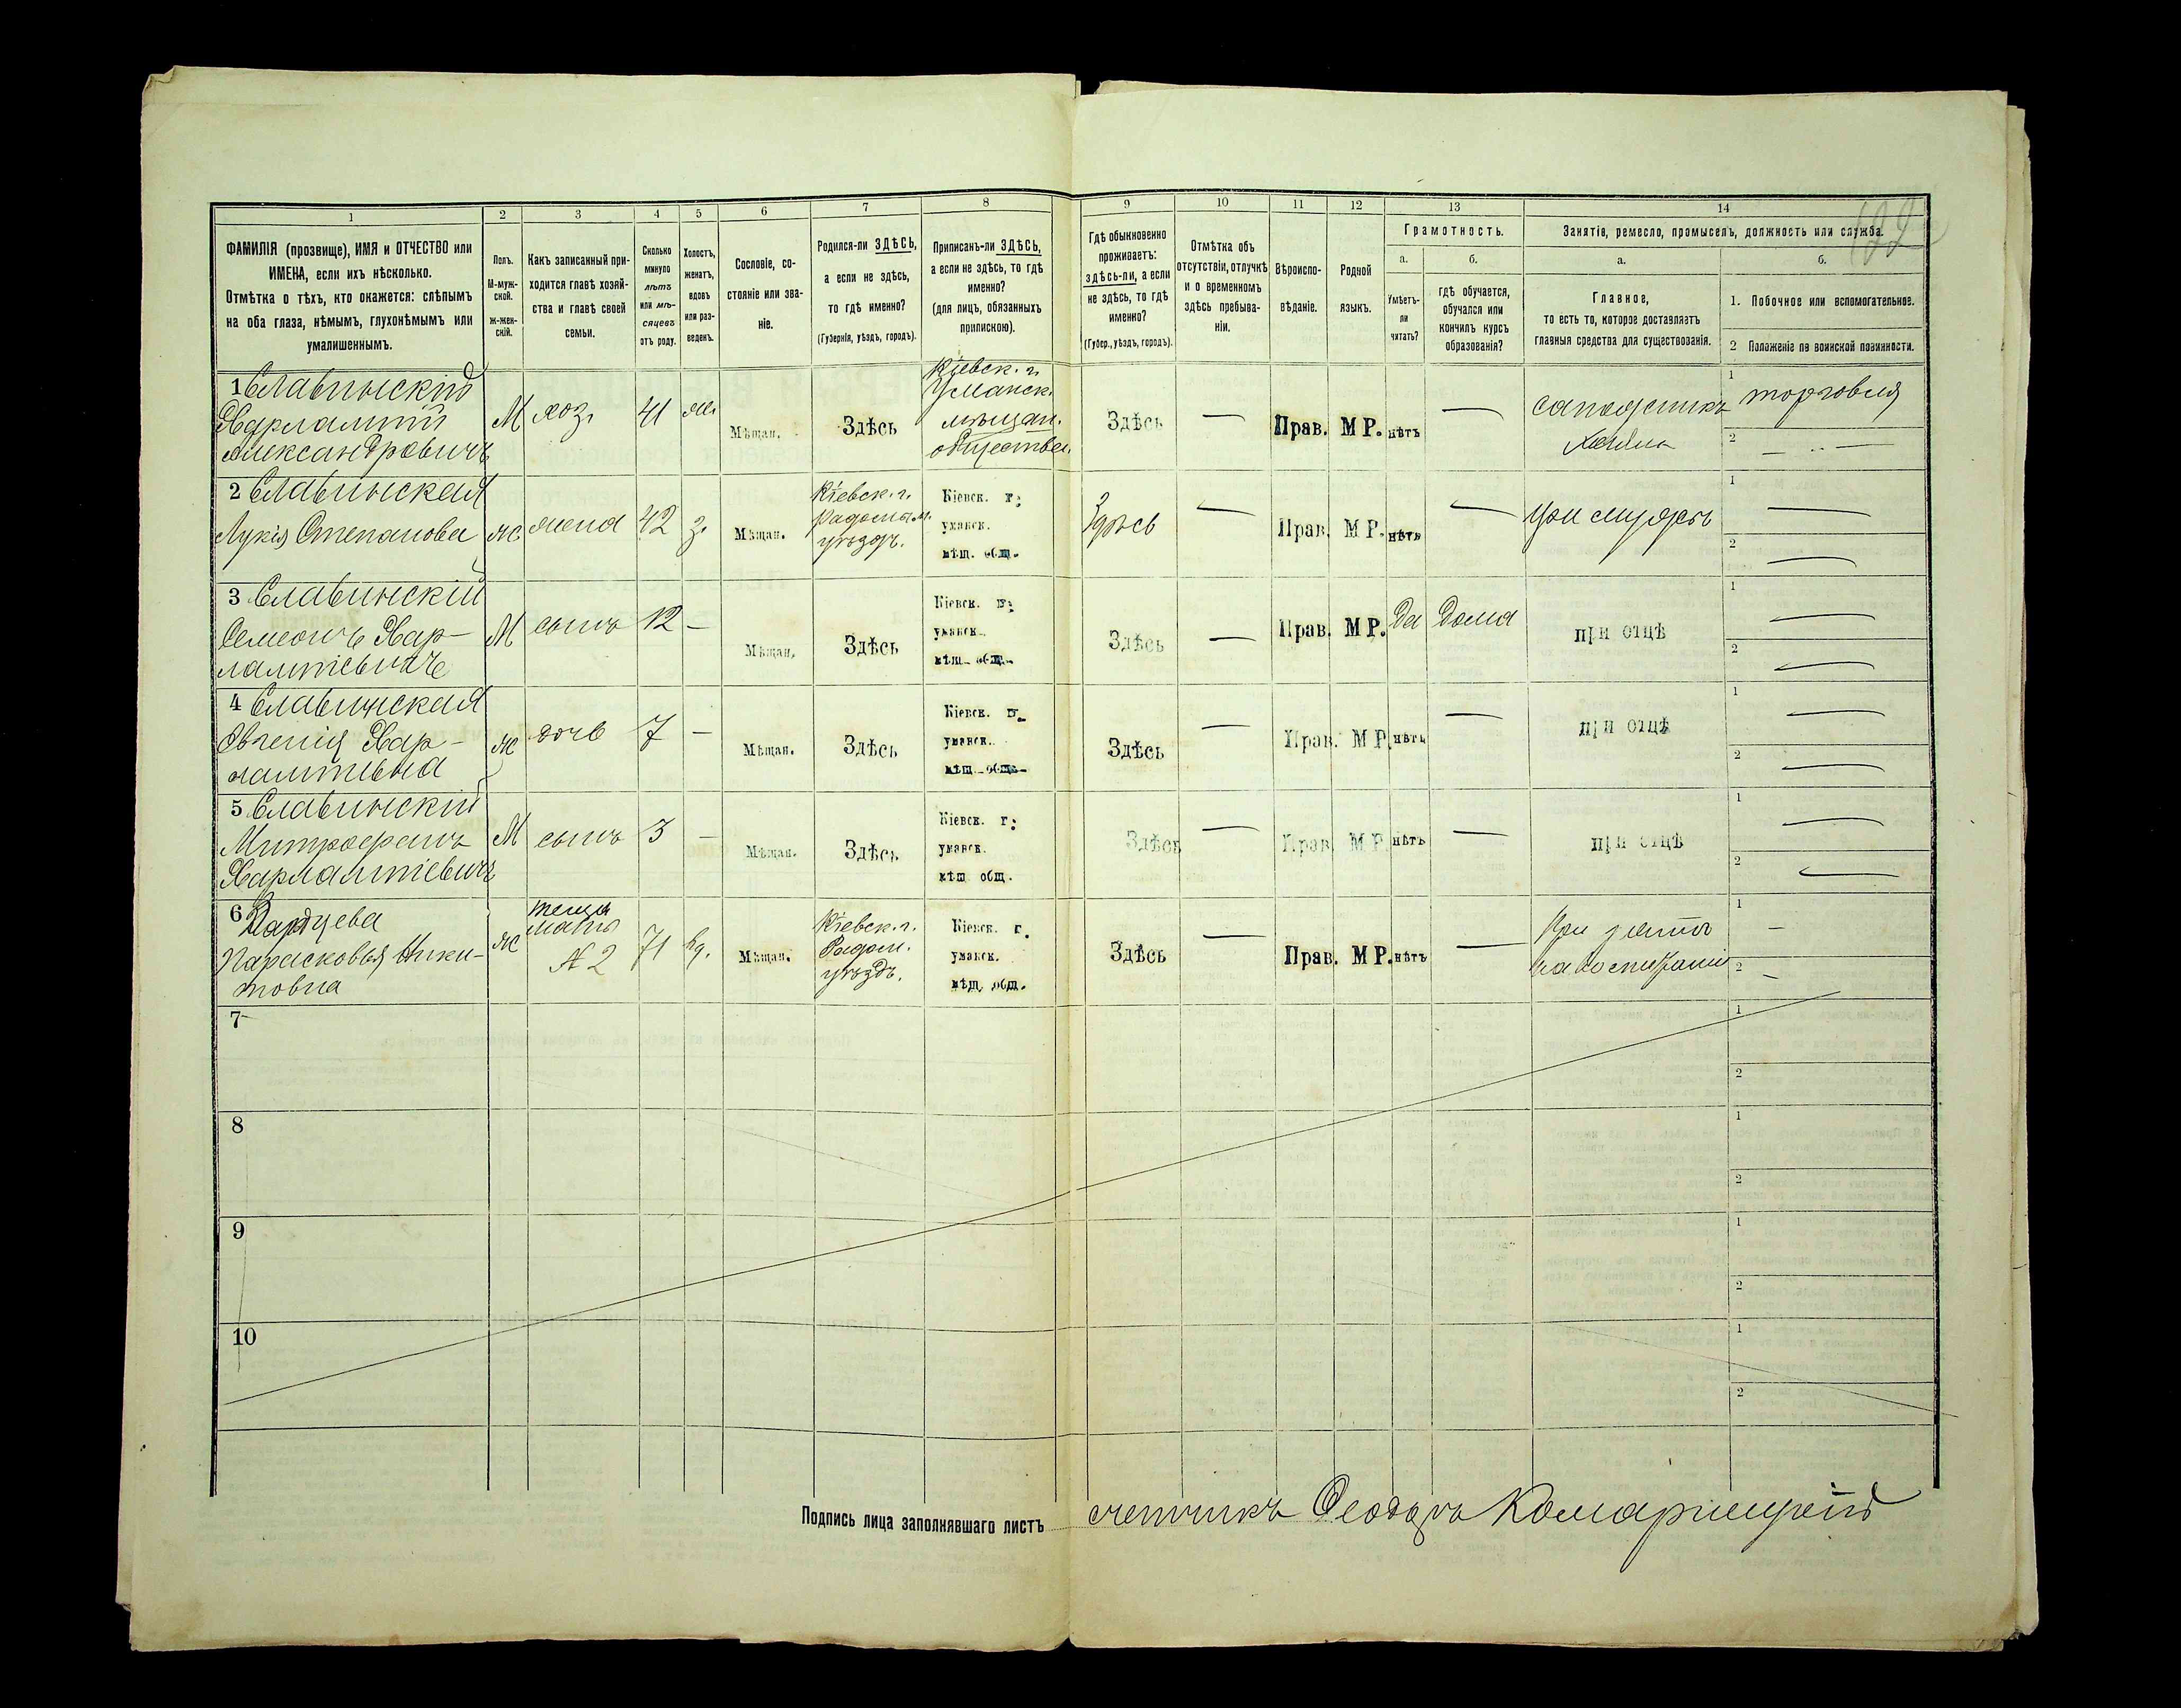 1 2 3 4 5 6 7 8 9 10 11 12 13 14
ФАМИЛІЯ (прозвище), ИМЯ и ОТЧЕСТВО или
ИМЕНА, если ихъ нѣсколько.
Отмѣтка о тѣхъ, кто окажется: слѣпымъ
на оба глаза, нѣмымъ, глухонѣмымъ или
умалишеннымъ.
Полъ.
М-муж-
ской.
ж-жен-
скій.
Какъ записанный при-
ходится главѣ хозяй-
ства и главѣ своей
семьи.
Сколько
минуло
лѣтъ
или мѣ-
сяцевъ
отъ роду.
Холостъ,
женатъ,
вдовъ
или раз-
веденъ.
Сословіе, со-
стояніе или зва-
ніе.
Родился-ли ЗДѢСЬ,
а если не здѣсь,
то гдѣ именно?
(Губернія, уѣздъ, городъ).
Приписанъ-ли ЗДѢСЬ,
а если не здѣсь, то гдѣ
именно?
(для лицъ, обязанныхъ
припискою).
Гдѣ обыкновенно
проживаетъ:
здѣсь-ли, а если
не здѣсь, то гдѣ
именно?
(Губер., уѣздъ, городъ).
Отмѣтка объ
отсутствіи, отлучкѣ
и о временномъ
здѣсь пребыва-
ніи.
Вѣроиспо-
вѣданіе.
Родной
языкъ.
Грамотность.
а.
Умѣетъ-
ли
читать?
б.
гдѣ обучается,
обучался или
кончилъ курсъ
образованія?
Занятіе, ремесло, промыселъ, должность или служба.
а.
Главное,
то есть то, которое доставляетъ
главныя средства для существованія.
б.
1. Побочное или вспомогательное.
2 Положеніе по воинской повинности.
122
1 Славинскій
Харлампій
Александровичъ
М хоз. 41 ж. Мѣщан. Здѣсь
Кіевск. г.
Уманск.
мѣщан.
обществен.
Здѣсь — Прав. М Р. нѣтъ —
сапожникъ
1 торговля
2 —
2 Славинская
Лукія Степанова
ж жена 42 з. Мѣщан.
Кіевск. г.
Радом.
уѣздъ.
Кіевск. г.
уманск.
мѣщ. общ.
Здѣсь — Прав. М Р. нѣтъ —
при мужѣ
1 —
2 —
3 Славинскій
Семеонъ Хар-
лампіевичъ
М сынъ 12 — Мѣщан. Здѣсь
Кіевск. г.
уманск.
мѣщ. общ.
Здѣсь — Прав. М Р. Да Дома
при отцѣ
1 —
2 —
4 Славинская
Евгенія Хар-
лампіевна
ж дочь 7 — Мѣщан. Здѣсь
Кіевск. г.
уманск.
мѣщ. общ.
Здѣсь — Прав. М Р. нѣтъ —
при отцѣ
1 —
2 —
5 Славинскій
Митрофанъ
Харлампіевичъ
М сынъ 3 — Мѣщан. Здѣсь
Кіевск. г.
уманск.
мѣщ. общ.
Здѣсь — Прав. М Р. нѣтъ —
при отцѣ
1 —
2 —
6
Парасковья Ники-
товна
ж
теща
мать
№ 2
71 вд. Мѣщан.
Кіевск. г.
Радом.
уѣздъ.
Кіевск. г.
уманск.
мѣщ. общ.
Здѣсь — Прав. М Р. нѣтъ —
При зятѣ
1 —
2 —
7 1
2
8 1
2
9 1
2
10 1
2
Подпись лица заполнявшаго листъ счетчикъ Феодоръ Комарницкій